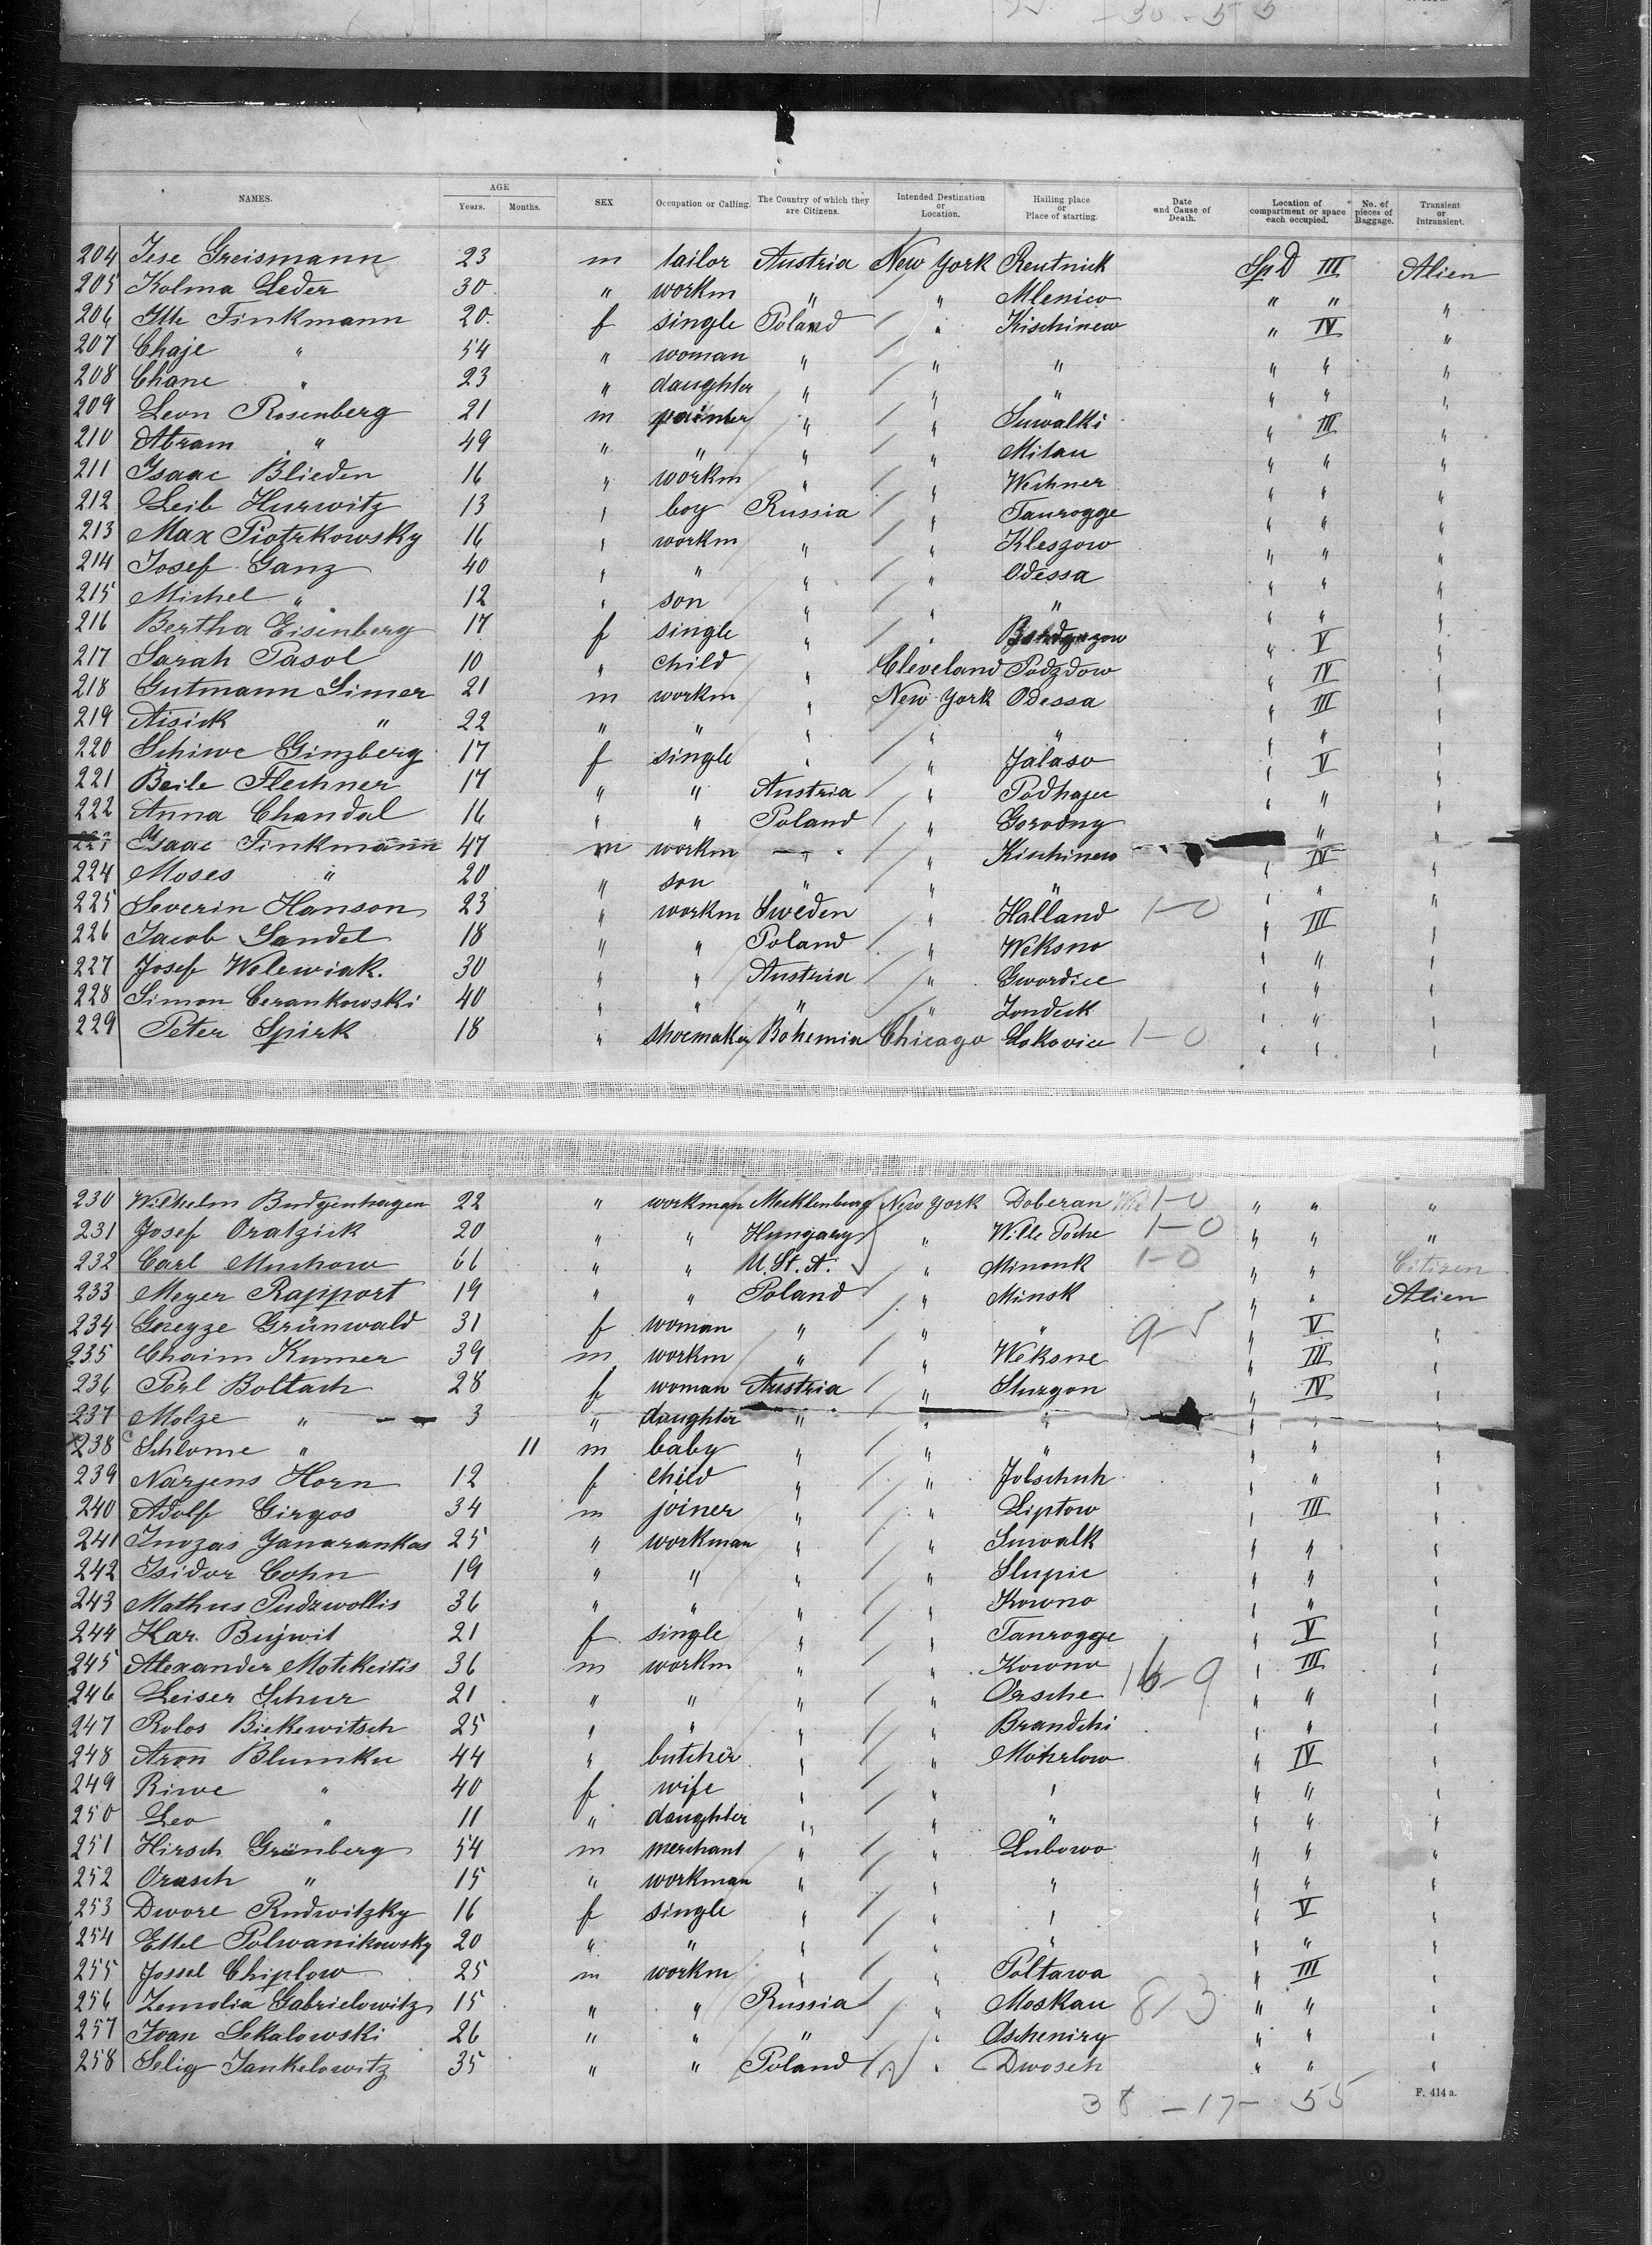 NAMES. AGE Years. Months. SEX Occupation or Calling. The Country of which they are Citizens. Intended Destination or Location. Hailing place or Place of starting. Date and Cause of Death. Location of compartment or space each occupied. No. of pieces of Baggage. Transient or Intransient.
204 Jese Greismann 23 m tailor Austria New York Reutnick SpD III Alien
205 Kolma Leder 30 " workm " " Mlenico " " "
206 Itte Finkmann 20 f single Poland " Kischinew " IV "
207 Chaje " 54 " woman " " " " " "
208 Chane " 23 " daughter " " " " " "
209 Leon Rosenberg 21 m painter " " Suwalki " III "
210 Abram " 49 " " " " Mitau " " "
211 Isaac Blieden 16 " workm " " Weihner " " "
212 Leib Hurwitz 13 " boy Russia " Taurogge " " "
213 Max Piotrkowsky 16 " workm " " Kleszow " " "
214 Josef Ganz 40 " " " " Odessa " " "
215 Michel " 12 " son " " " " " "
216 Bertha Eisenberg 17 f single " " " V "
217 Sarah Pasol 10 " child " Cleveland Podzdow " IV "
218 Gutmann Simer 21 m workm " New York Odessa " III "
219 Aisick " 22 " " " " " " " "
220 Schiwe Ginzberg 17 f single " " Jalaso " V "
221 Beile Flechner 17 " " Austria " Podhajce " " "
222 Anna Chandal 16 " " Poland " Gorodny " " "
223 Isaac Finkmann 47 m workm " " Kischinew " IV "
224 Moses " 20 " son " " " " " "
225 Severin Hanson 23 " workm Sweden " Halland 1-0 " III "
226 Jacob Sandel 18 " " Poland " Weksno " " "
227 Josef Welewiak. 30 " " Austria " Gwordice " " "
228 Simon Cerankowski 40 " " " " Zondeck " " "
229 Peter Spirk 18 " shoemaker Bohemia Chicago Lokovice 1-0 " " "
230 Wilhelm Budgenhagen 22 " workman Mecklenburg New York Doberan 1-0 " " "
231 Josef Oratzick 20 " " Hungary " Wille Poche 1-0 " " "
232 Carl Muchow 66 " " U.St.A. " Minonk 1-0 " " Citizen
233 Meyer Rapport 19 " " Poland " Minsk " " Alien
234 Greyze Grünwald 31 f woman " " " 9-5 " V "
235 Chaim Kumer 39 m workm " " Weksne " III "
236 Perl Boltach 28 f woman Austria " Sturgon " IV "
237 Molze " 3 " daughter " " " " " "
238 Schlome " 11 m baby " " " " " "
239 Narjens Horn 12 f child " " Jolschuh " " "
240 Adolf Girgos 34 m joiner " " Liptow " III "
241 Inozas Janarankas 25 " workman " " Suwalk " " "
242 Isidor Cohn 19 " " " " Slupie " " "
243 Mathus Pudzwollis 36 " " " " Kowno " " "
244 Kar. Bujwit 21 f single " " Taurogge " V "
245 Alexander Motekeitis 36 m workm " " Kowno " III "
246 Leiser Schur 21 " " " " Orsche 16-9 " " "
247 Rolos Biekewitsch 25 " " " " Brandchi " " "
248 Aron Blumku 44 " butcher " " Mohrlow " IV "
249 Riwe " 40 f wife " " " " " "
250 Leo " 11 " daughter " " " " " "
251 Hirsch Grünberg 54 m merchant " " Lubowo " " "
252 Orasch " 15 " workman " " " " " "
253 Dwore Rudwitzky 16 f single " " " " V "
254 Ettel Polwanikowsky 20 " " " " " " " "
255 Jossel Chiplow 25 m workm " " Poltawa " III "
256 Zemolia Gabrielowitz 15 " " Russia " Moskau 8/3 " " "
257 Ivan Sekalowski 26 " " " " Ascheniry " " "
258 Selig Jankelowitz 35 " " Poland " Dwosch " " "
38 - 17 - 55
F. 414 a.